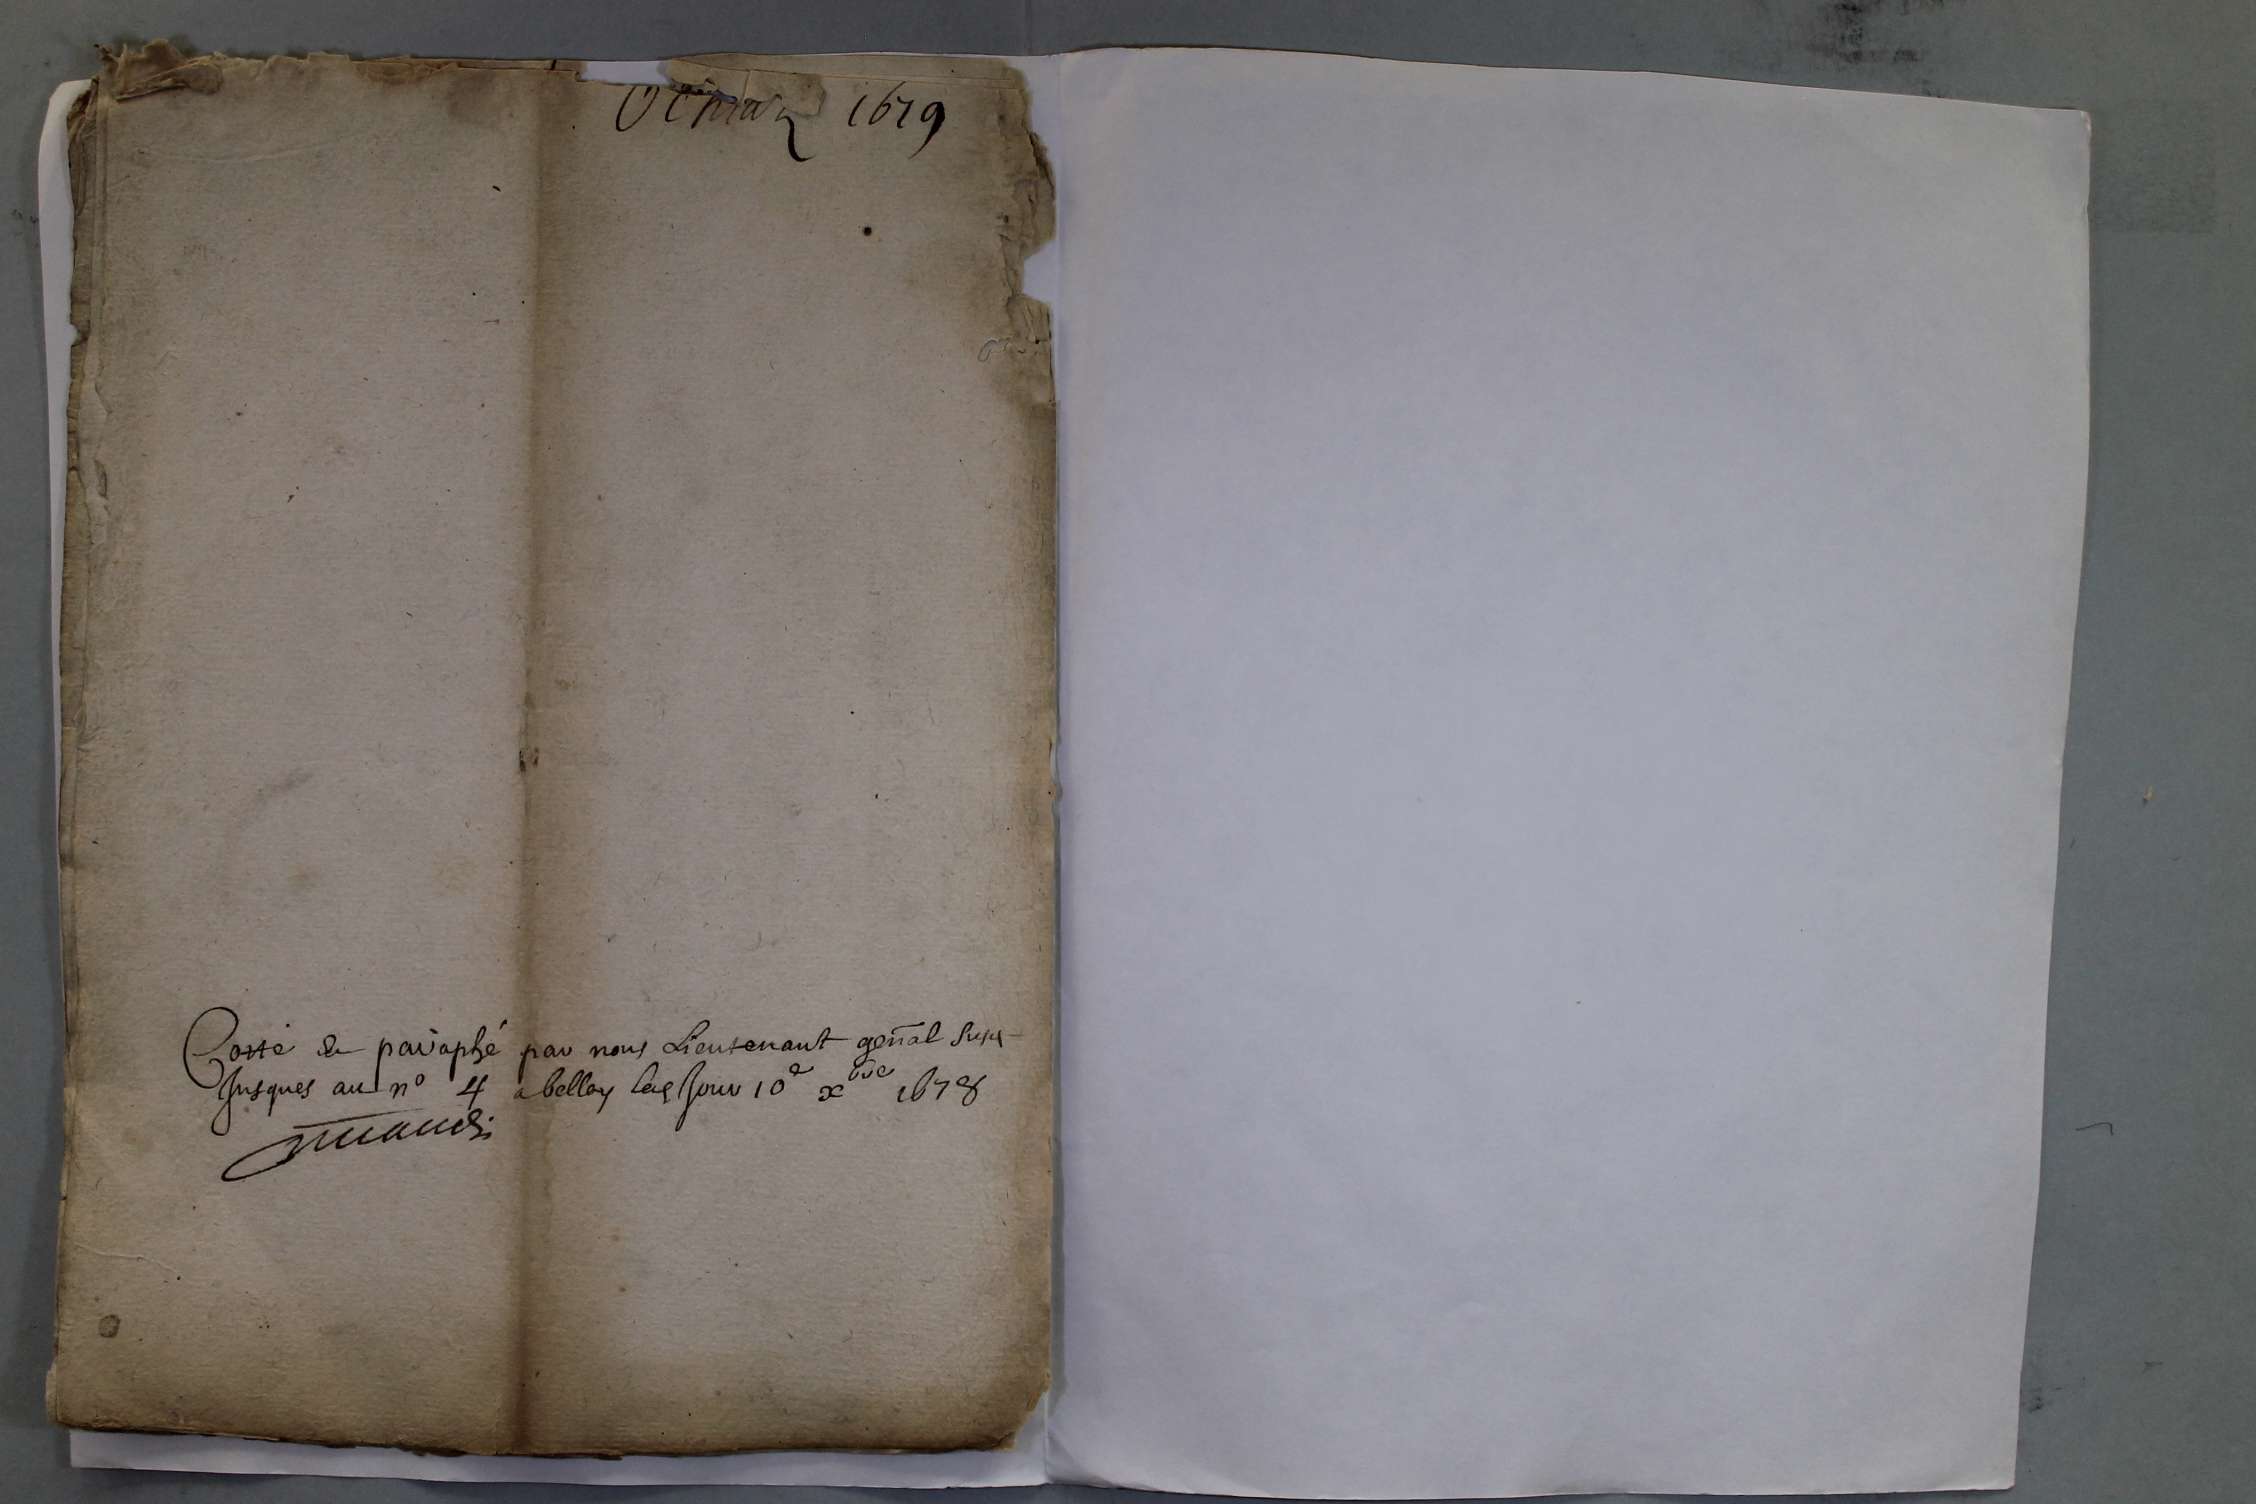 Ochiaz 1679
Cotté & paraphé par nous Lieutenant gen̄al
Jusques au n° 4 a belley Jour 10e xbre 1678